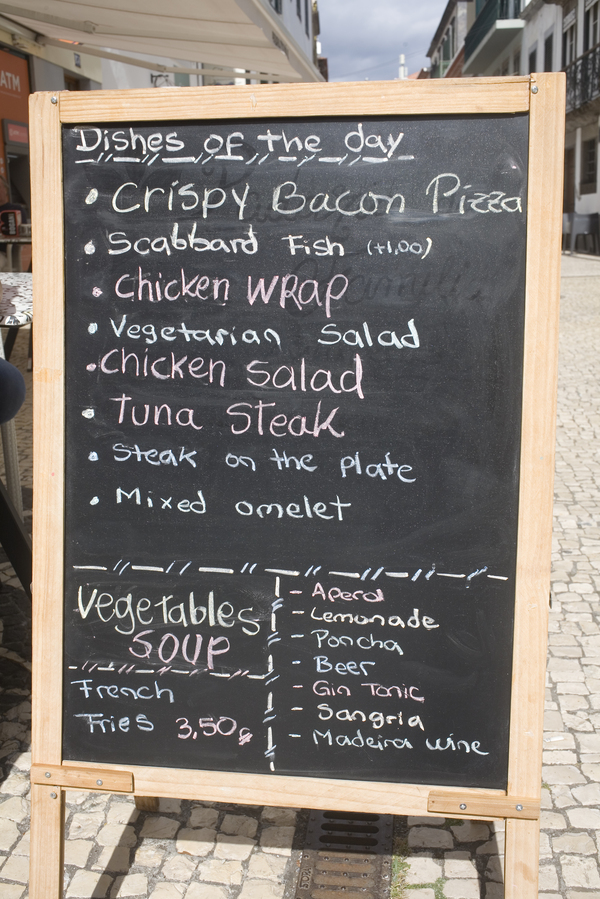 ATM
Dishes of the day
• Crispy Bacon Pizza
• Scabbard Fish (+1,00)
• Chicken WRAP
• Vegetarian Salad
• Chicken Salad
• Tuna Steak
• Steak on the plate
• Mixed omelet
Vegetables
SOUP
French
Fries 3,50
- Aperol
- Lemonade
- Poncha
- Beer
- Gin Tonic
- Sangria
- Madeira wine